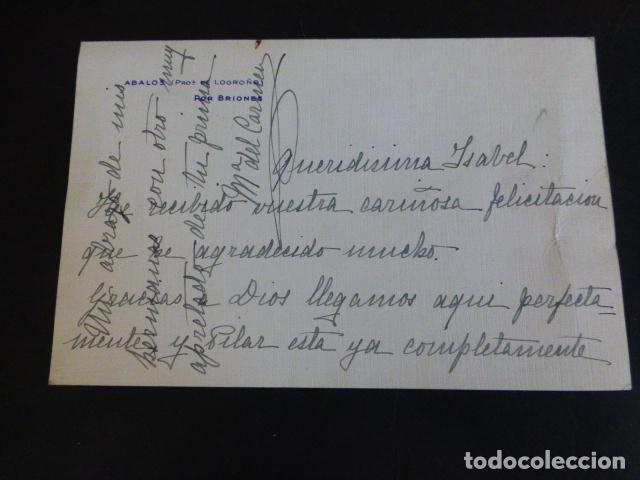 ABALOS (Prov. de LOGROÑO)
POR BRIONES
Queridisima Isabel:
He recibido vuestra cariñosa felicitacion
que he agradecido mucho.
Gracias a Dios llegamos aqui perfecta-
mente y Pilar está ya completamente
Un abrazo de mis
hermanas con otro muy
apretado de tu prima
Mª del Carmen
todocoleccion.net